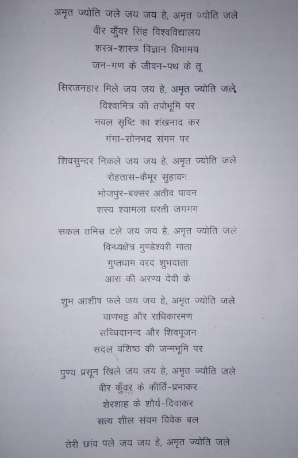 अमृत ज्योति जले जय जय हे, अमृत ज्योति जले
वीर कुँवर सिंह विश्वविद्यालय
शस्त्र-शास्त्र विज्ञान विभामय
जन-गण के जीवन-पथ के तू
सिरजनहार मिले जय जय हे, अमृत ज्योति जले,
विश्वामित्र की तपोभूमि पर
नवल सृष्टि का शंखनाद कर
गंगा-सोनभद्र संगम पर
शिवसुन्दर निकले जय जय हे, अमृत ज्योति जले
रोहतास-कैमूर सुहावन
भोजपुर-बक्सर अतीव पावन
शस्य श्यामला धरती जगमग
सकल तमिस्र टले जय जय हे, अमृत ज्योति जले
विन्ध्यक्षेत्र गुण्डेश्वरी माता
गुप्तधाम वरद शुभदाता
आरा की अरण्य देवी के
शुभ आशीष फले जय जय हे, अमृत ज्योति जले
वाणभट्ट और राधिकारमण
सच्चिदानन्द और शिवपूजन
सदल वशिष्ठ की जन्मभूमि पर
पुण्य प्रसून खिले जय जय हे, अमृत ज्योति जले
वीर कुँवर के कीर्ति-प्रभाकर
शेरशाह के शौर्य-दिवाकर
सत्य शील संयम विवेक बल
तेरी छांव पले जय जय हे, अमृत ज्योति जले